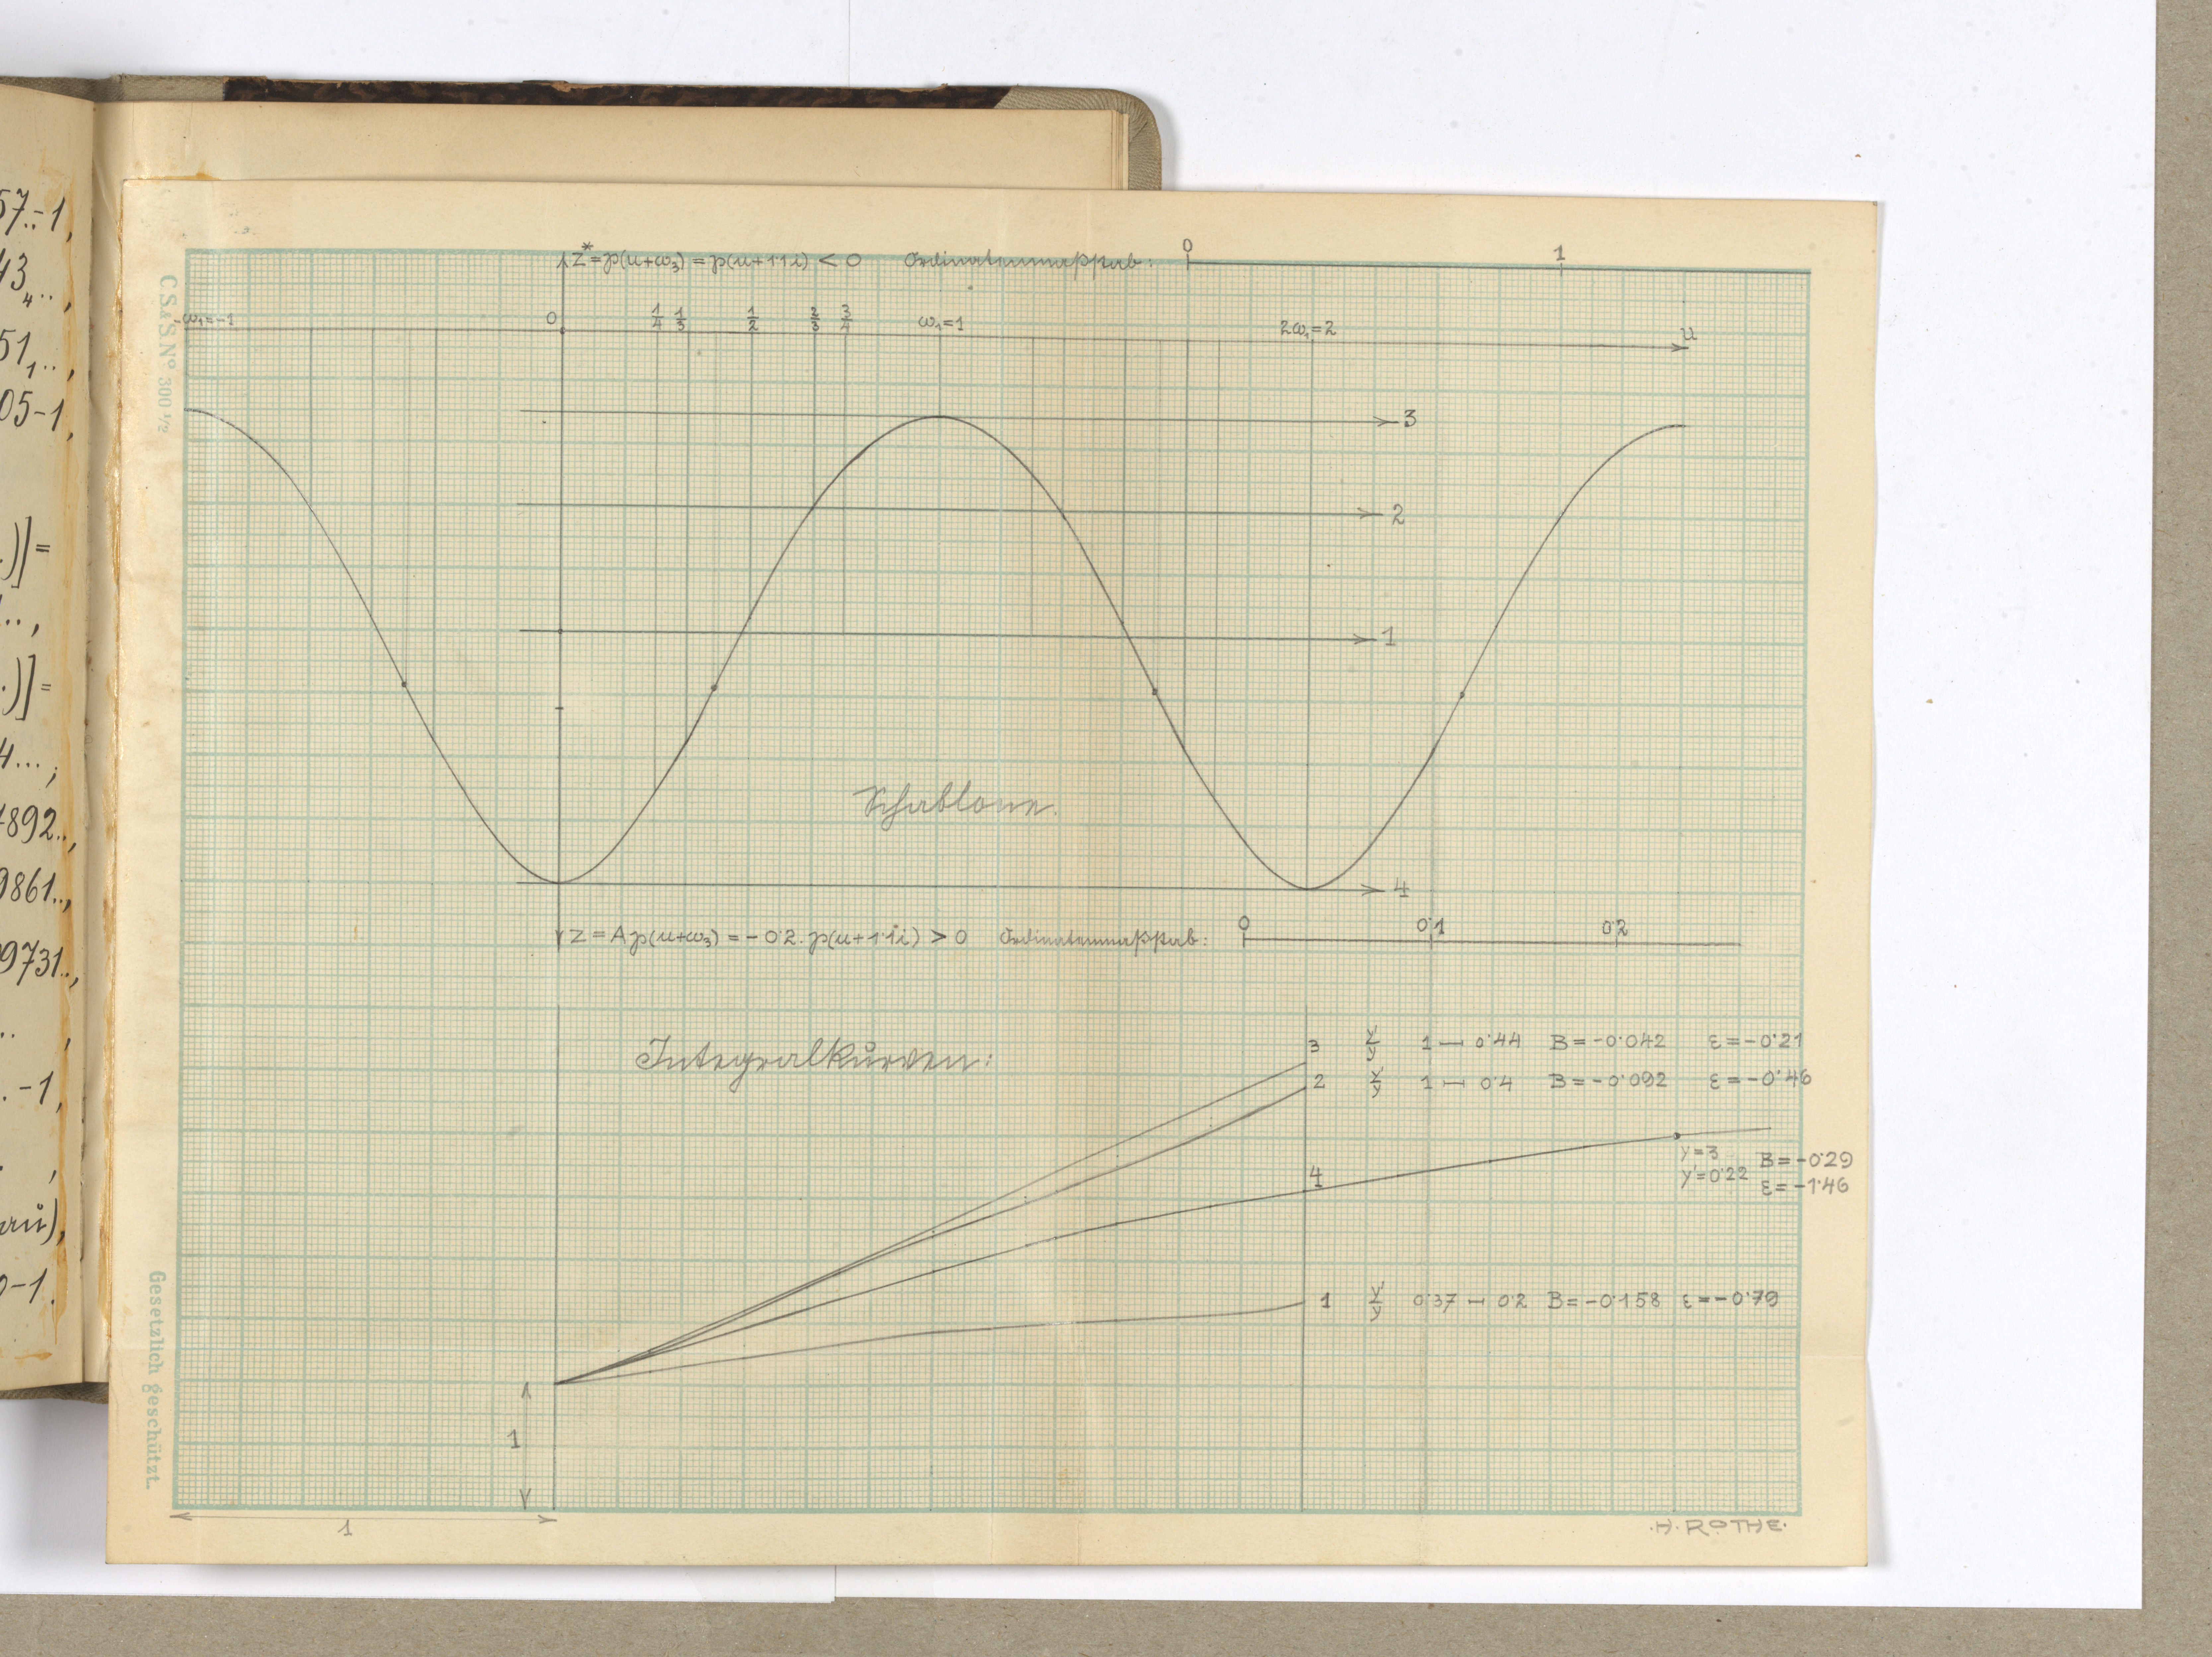 57..-1,
43₄..,
51₁..,
05-1,
.)]=
..,
.)]=
4...;
4892..,
9861..,
9731..,
.. ,
. -1,
. ,
au),
0-1.
C.S.&S. Nº 300 1/2
Gesetzlich geschützt.
z* = ℘(u+ω₃) = ℘(u+1·1i) < 0 Ordinatenmaßstab: 0 1
-ω₁=-1 0 1/4 1/3 1/2 2/3 3/4 ω₁=1 2ω₁=2 u
3
2
1
Schablone.
4
z = A℘(u+ω₃) = -0·2.℘(u+1·1i) > 0 Ordinatenmaßstab: 0 0·1 0·2
Integralkurven:
3 y'/y 1 — 0·44 B=-0·042 ε=-0·21
2 y'/y 1 — 0·4 B=-0·092 ε=-0·46
4 y=3 B=-0·29
y'=0·22 ε=-1·46
1 y'/y 0·37 — 0·2 B=-0·158 ε=-0·79
1
1
·H·ROTHE·